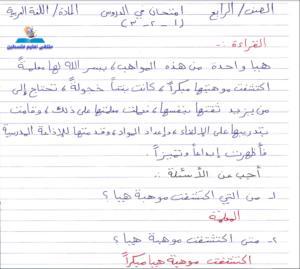 الصف/ الرابع امتحان في الدروس المادة/ اللغة العربية
(١-٢-٣)
ملتقى تعليم فلسطين
القراءة :-
هبا واحدة من هذه المواهب، يسر الله لها معلمة
اكتشفت موهبتها مبكراً، كانت بنتاً خجولة، تحتاج إلى
من يزيد ثقتها بنفسها، فعملت معلمتها على ذلك، وقامت
بتدريبها على الإلقاء، وإعداد المواد، وقدمتها للإذاعة المدرسية
فأظهرت إبداعاً وتميزاً.
أجب عن الأسئلة :-
١- من التي اكتشفت موهبة هبا ؟
المعلمة
٢- متى اكتشفت موهبة هبا ؟
اكتشفت موهبة هبا مبكراً